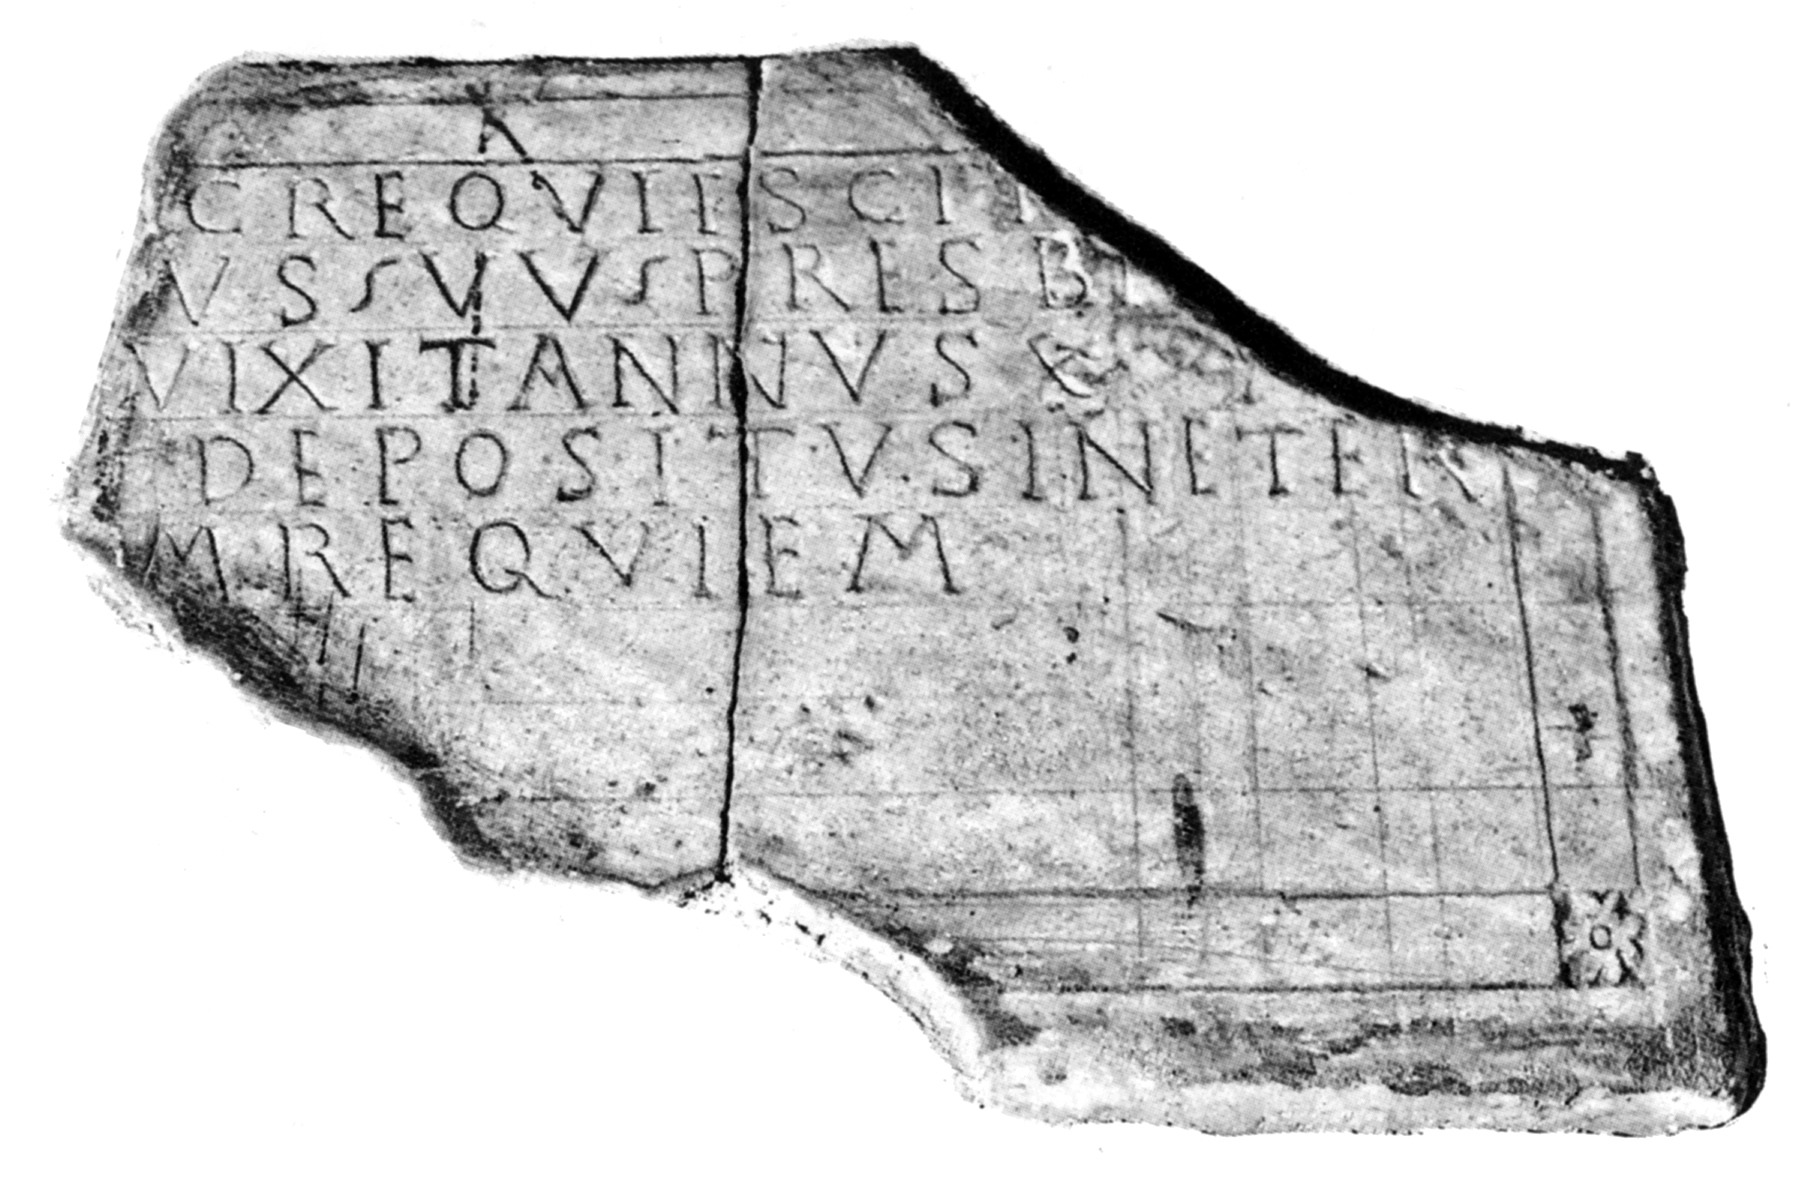 C REQVIESCIT
VS S VV S PRESBI
VIXIT ANNVS
DEPOSITVS IN ETER
M REQVIEM